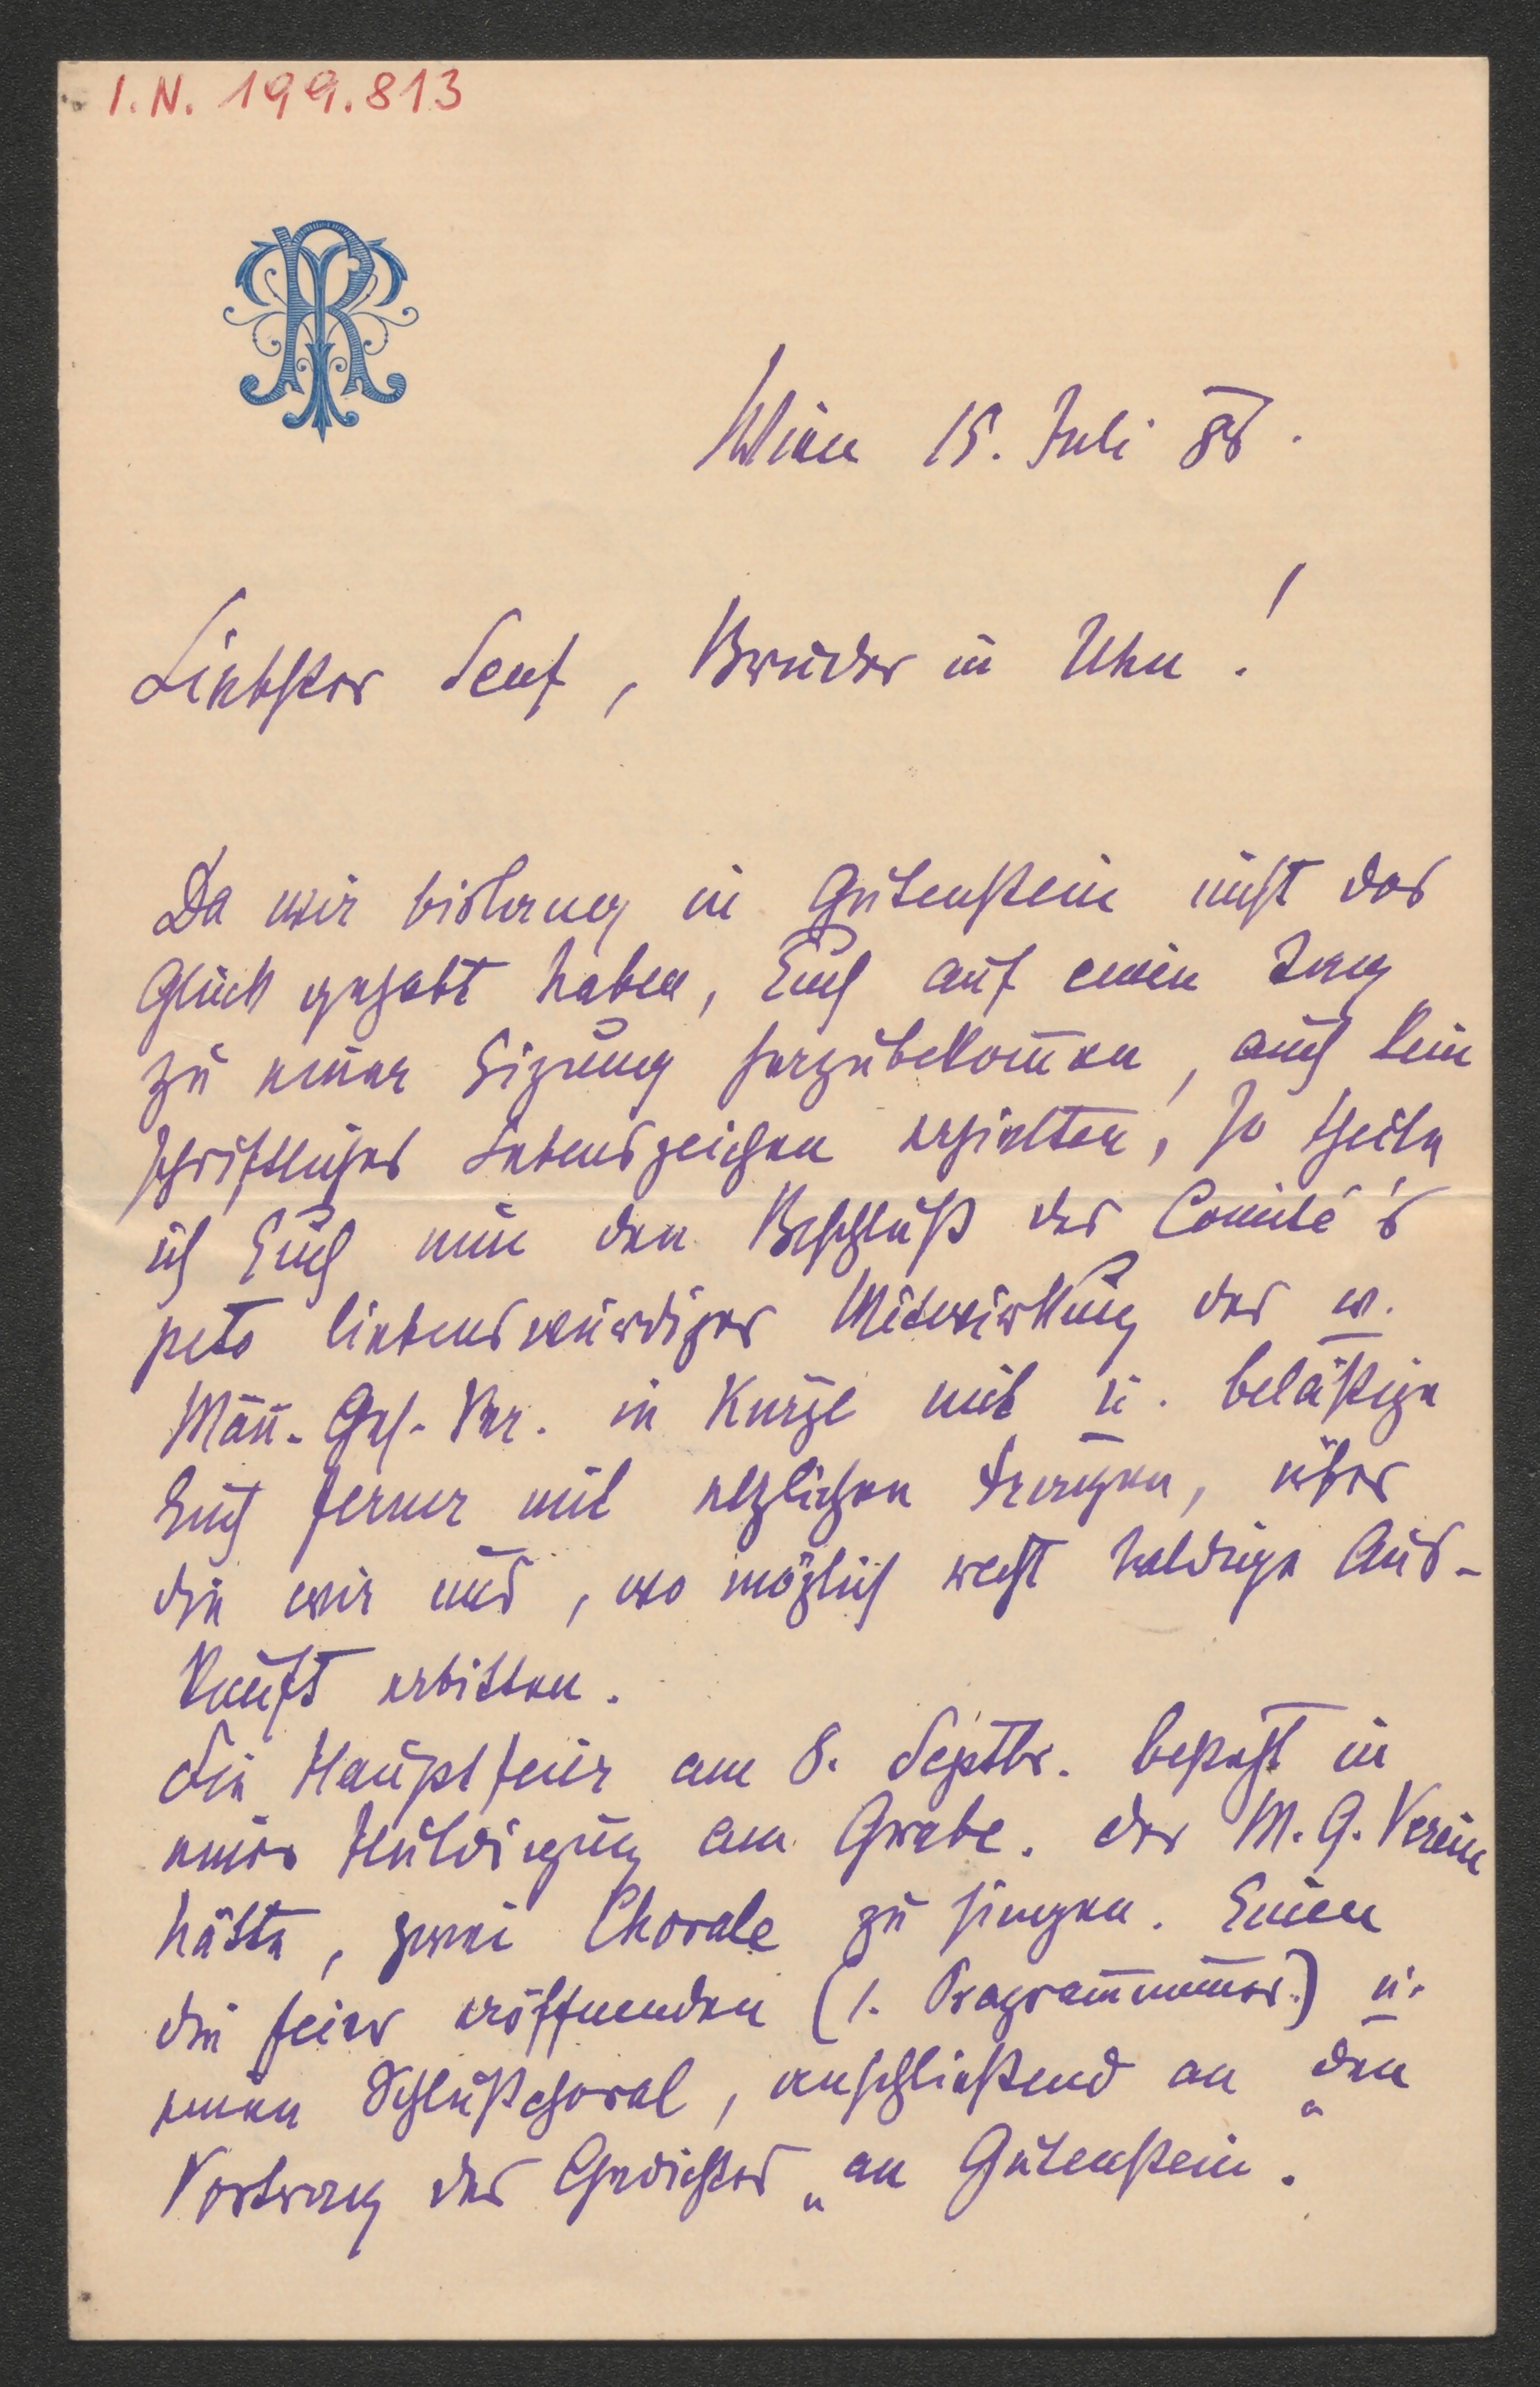 I.N. 199.813
Wien 15. Juli 86.
Liebster Senf, Bruder in Uhu!
Da wir bislang in Gutenstein nicht das
Glück gehabt haben, Euch auf einen Tag
zu einer Sizung herzubekom̄en, auch kein
schriftliches Lebenszeichen erhielten, so theile
ich Euch nun den Beschluß des Comité's
pcto liebenswürdiger Mitwirkung des w.
Män̄-Ges-Ver. in Kürze mit u. belästige
Euch ferner mit etzlichen Fragen, über
die wir uns, wo möglich recht baldige Aus-
kunft erbitten.
Die Hauptfeier am 8. Septbr. besteht in
einer Huldigung am Grabe. Der M. G. Verein
hätte, zwei Chorale zu singen. Einen
die Feier eröffnenden (1. Program̄num̄er.) u.
einen Schlußchoral, anschließend an den
Vortrag des Gedichtes „an Gutenstein.